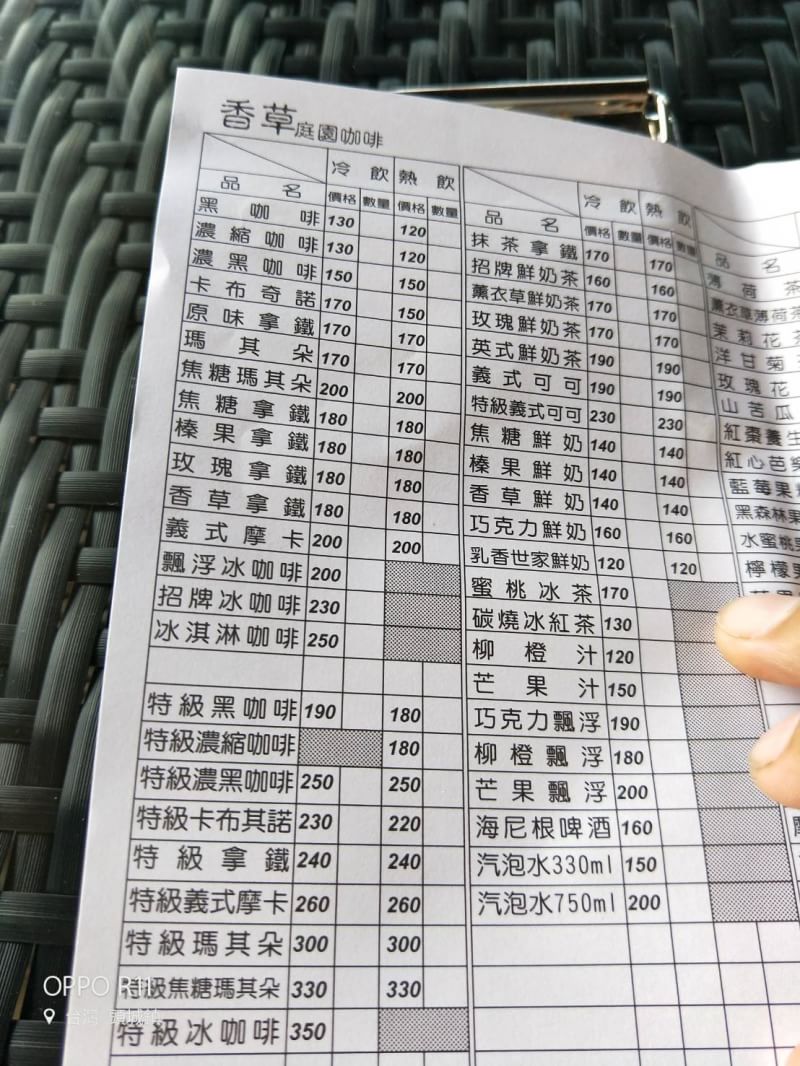 香草庭園咖啡
品名 冷飲 熱飲
價格 數量 價格 數量
黑咖啡 130 120
濃縮咖啡 130 120
濃黑咖啡 150 150
卡布奇諾 170 150
原味拿鐵 170 170
瑪其朵 170 170
焦糖瑪其朵 200 200
焦糖拿鐵 180 180
榛果拿鐵 180 180
玫瑰拿鐵 180 180
香草拿鐵 180 180
義式摩卡 200 200
飄浮冰咖啡 200
招牌冰咖啡 230
冰淇淋咖啡 250
特級黑咖啡 190 180
特級濃縮咖啡 180
特級濃黑咖啡 250 250
特級卡布其諾 230 220
特級拿鐵 240 240
特級義式摩卡 260 260
特級瑪其朵 300 300
特級焦糖瑪其朵 330 330
特級冰咖啡 350
品名 冷飲 熱飲
價格 數量 價格 數量
抹茶拿鐵 170 170
招牌鮮奶茶 160 160
薰衣草鮮奶茶 170 170
玫瑰鮮奶茶 170 170
英式鮮奶茶 190 190
義式可可 190 190
特級義式可可 230 230
焦糖鮮奶 140 140
榛果鮮奶 140 140
香草鮮奶 140 140
巧克力鮮奶 160 160
乳香世家鮮奶 120 120
蜜桃冰茶 170
碳燒冰紅茶 130
柳橙汁 120
芒果汁 150
巧克力飄浮 190
柳橙飄浮 180
芒果飄浮 200
海尼根啤酒 160
汽泡水330ml 150
汽泡水750ml 200
品名
薄荷茶
薰衣草薄荷茶
茉莉花茶
洋甘菊
玫瑰花
山苦瓜
紅棗養生
紅心芭樂
藍莓果
黑森林果
水蜜桃
檸檬
OPPO R11
台灣 頭城鎮